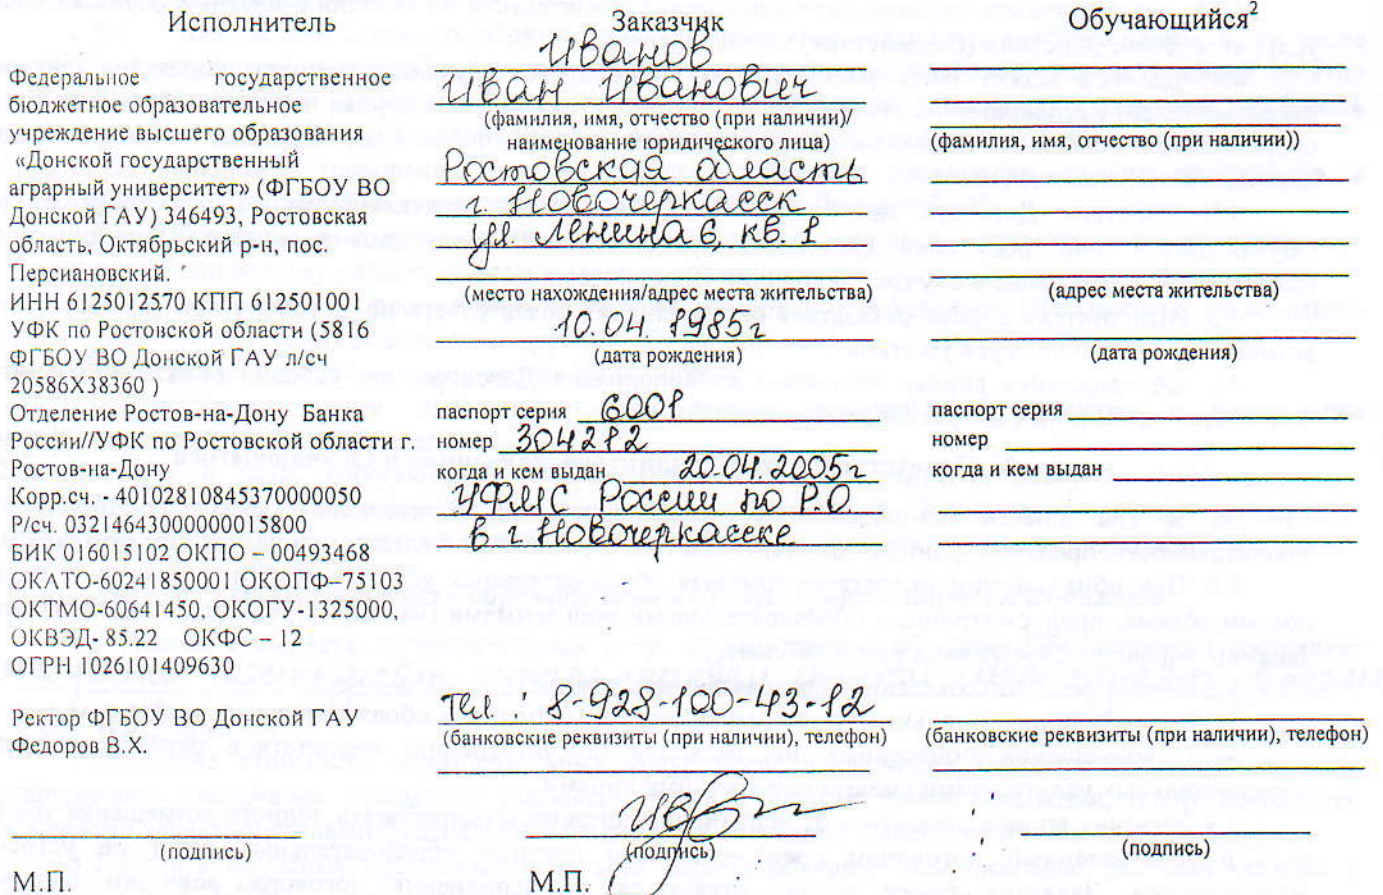 Исполнитель
Федеральное государственное
бюджетное образовательное
учреждение высшего образования
«Донской государственный
аграрный университет» (ФГБОУ ВО
Донской ГАУ) 346493, Ростовская
область, Октябрьский р-н, пос.
Персиановский.
ИНН 6125012570 КПП 612501001
УФК по Ростовской области (5816
ФГБОУ ВО Донской ГАУ л/сч
20586X38360 )
Отделение Ростов-на-Дону Банка
России//УФК по Ростовской области г.
Ростов-на-Дону
Корр.сч. - 40102810845370000050
Р/сч. 03214643000000015800
БИК 016015102 ОКПО – 00493468
ОКАТО-60241850001 ОКОПФ-75103
ОКТМО-60641450, ОКОГУ-1325000,
ОКВЭД- 85.22 ОКФС – 12
ОГРН 1026101409630
Ректор ФГБОУ ВО Донской ГАУ
Федоров В.Х.
(подпись)
М.П.
Заказчик
Иванов
Иван Иванович
(фамилия, имя, отчество (при наличии)/
наименование юридического лица)
Ростовская область
г. Новочеркасск
ул Ленина 6 кв. 1
(место нахождения/адрес места жительства)
10.04 1985г
(дата рождения)
паспорт серия 6001
номер 304212
когда и кем выдан 20.04.2005г
УФМС России по Р.О.
в г Новочеркасске
Тел : 8-928-100-43-12
(банковские реквизиты (при наличии), телефон)
(подпись)
М.П.
Обучающийся2
(фамилия, имя, отчество (при наличии))
(адрес места жительства)
(дата рождения)
паспорт серия
номер
когда и кем выдан
(банковские реквизиты (при наличии), телефон)
(подпись)